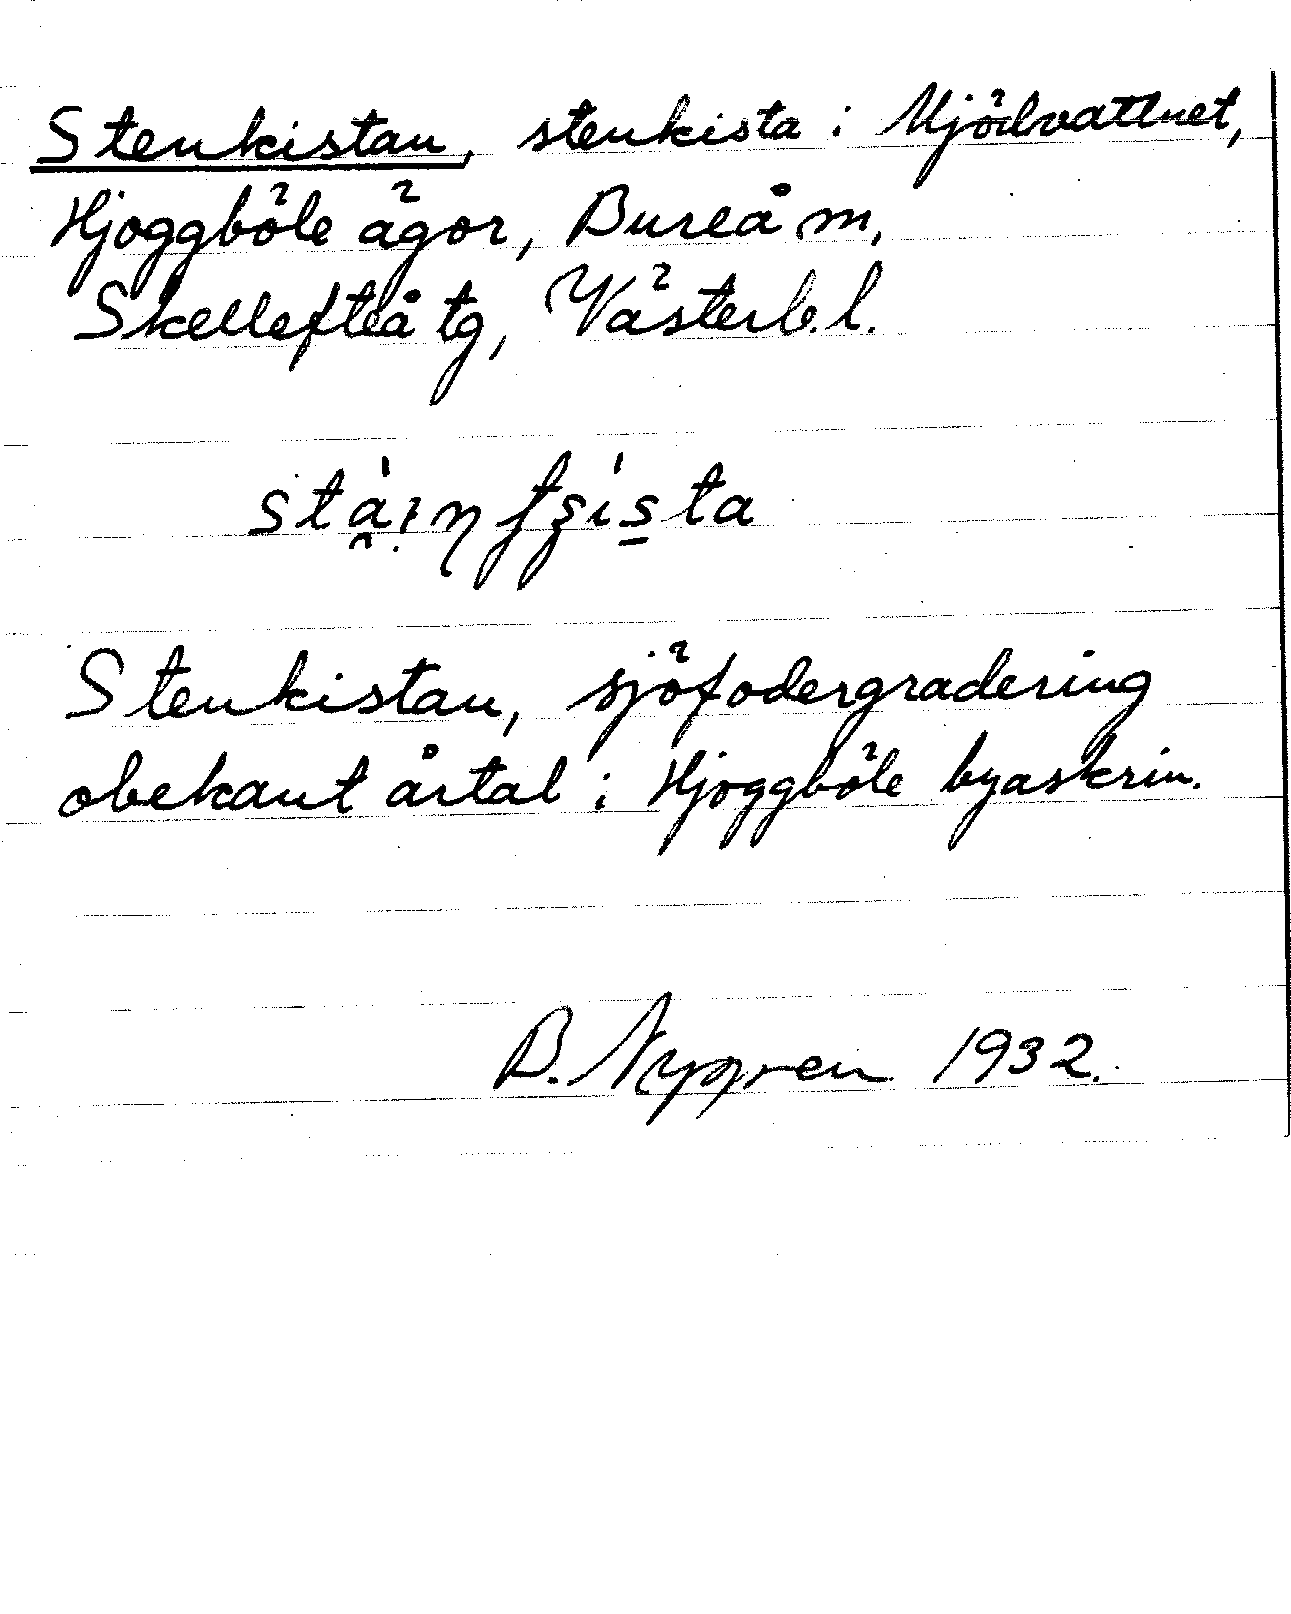 Stenkistan, stenkista i Mjödvattnet,
Hjoggböle ägor, Bureå m,
Skellefteå tg, Västerb. l.
Stenkistan, sjöfodergradering
obekant årtal i Hjoggböle byaskrin.
B. Nygren 1932.